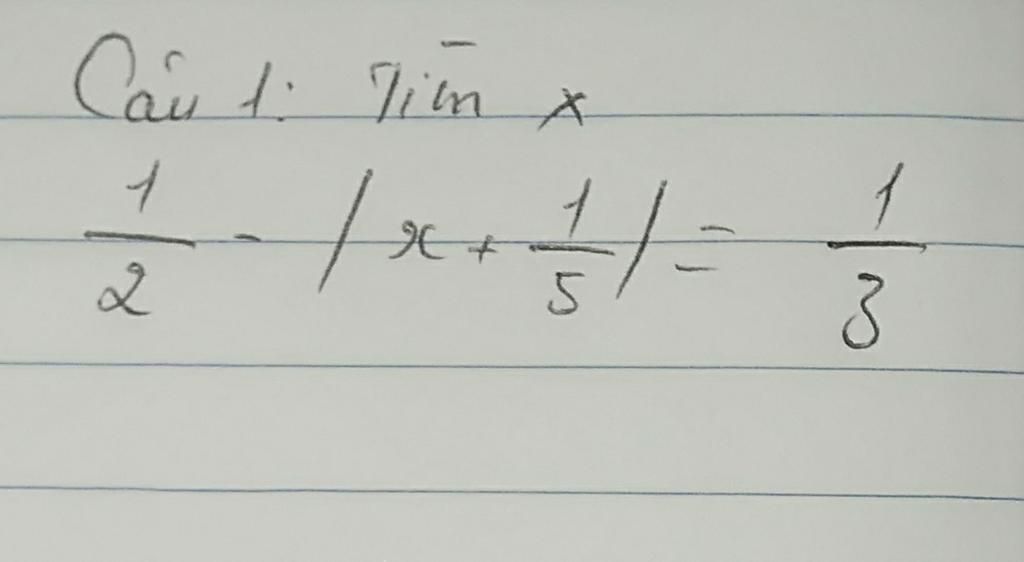 Câu 1: Tìm x
1/2 - | x + 1/5 | = 1/3